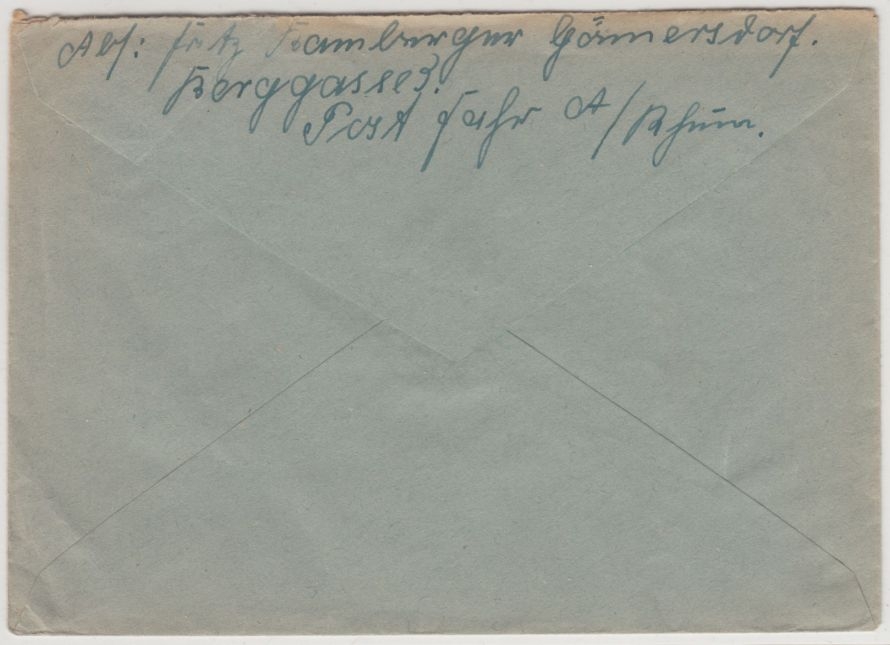 Abs: Fritz Bamberger Gönnersdorf.
Berggasse 3.
Post Fahr A/Rhein.